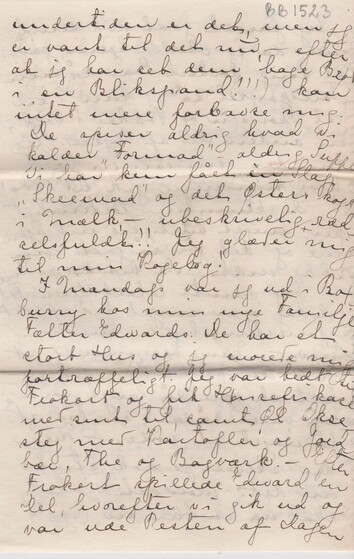 BB1523
undertiden er det, men jeg
er vant til det nu, – efter
at jeg har set dem "bage Brød
i en Blikspand!!!) kan
intet mere forbavse mig.
De spiser aldrig hvad vi
kalder "Formad" aldrig Suppe
Vi har kun fået en Slags
"Skeemad" og det Østers kogt
i Mælk, – ubeskrivelig ræd
selsfuldt!! Jeg glæder mig
til min Kogebog!
I Mandags var jeg ud i Rox
burry hos min nye Familje
Fætter Edwards. De har et
stort Hus og jeg morede mig
portræffeligt. Jeg var bedt til
Frokost og fik Hønsefrikasé
med smt til, samt Øl Okse
steg med Kartofler og Jord
bær, The og Bagværk. – Efter
Frokost spillede Edward en
Del, hvorefter vi gik ud og
var ude Resten af Dagen